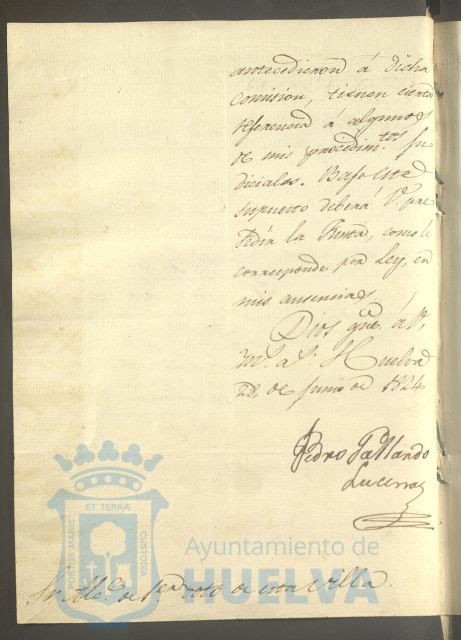 antecedieron á dicha
comision, tienen cierta
referencia á algunos
de mis procedim.tos Ju
diciales. Bajo este
supuesto deberá V. pre
sidir la Junta, como le
corresponde por Ley, en
mis ausencias.
Dios gue. á V.
m.s a.s Huelva
28, de Junio de 1824
Pedro
Lucena
ET TERRÆ
PORTUS MARIS
CUSTODIA
Ayuntamiento de
HUELVA
Sr. Alce. de 2.º voto de esta Villa.